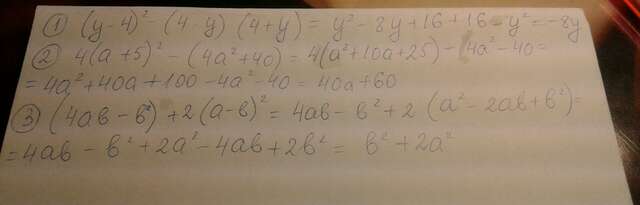 ① (y-4)² - (4-y) (4+y) = y² - 8y + 16 + 16 - y² = -8y
② 4(a+5)² - (4a²+40) = 4(a²+10a+25) - (4a² - 40 =
= 4a² + 40a + 100 - 4a² - 40 = 40a + 60
③ (4ab - b²) + 2(a-b)² = 4ab - b² + 2 (a² - 2ab + b²) =
= 4ab - b² + 2a² - 4ab + 2b² = b² + 2a²